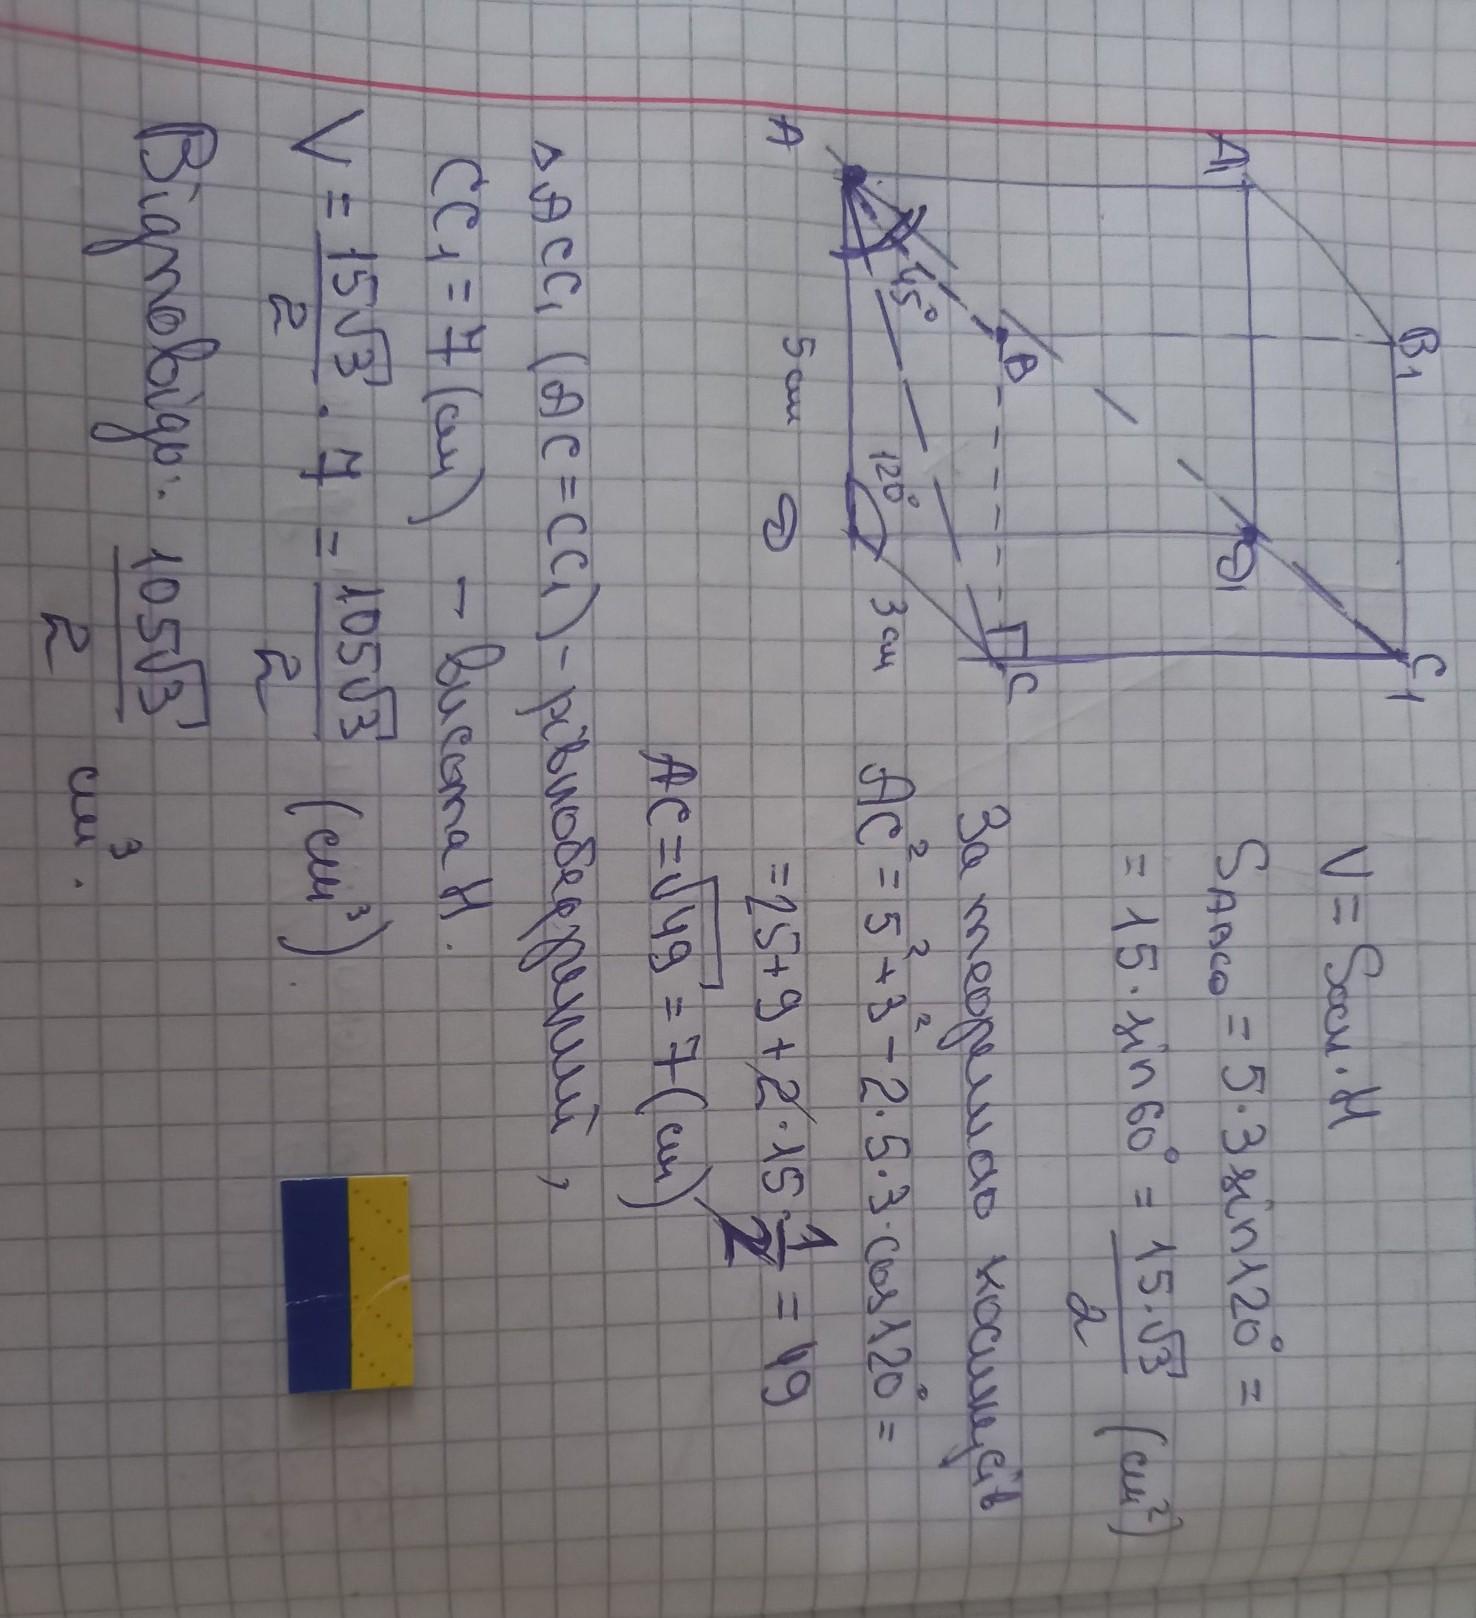 A1
B1
C1
D1
A
B
C
D
45°
120°
5 см
3 см
V = Sосн · H
SABCD = 5 · 3 sin 120° =
= 15 · sin 60° = 15 · √3 / 2 (см²)
За теоремою косинусів
AC² = 5² + 3² - 2 · 5 · 3 · cos 120° =
= 25 + 9 + 2 · 15 · 1/2 = 49
AC = √49 = 7 (см)
△ACC₁ (AC = CC₁) - рівнобедрений,
CC₁ = 7 (см) - висота H.
V = 15√3 / 2 · 7 = 105√3 / 2 (см³).
Відповідь: 105√3 / 2 см³.